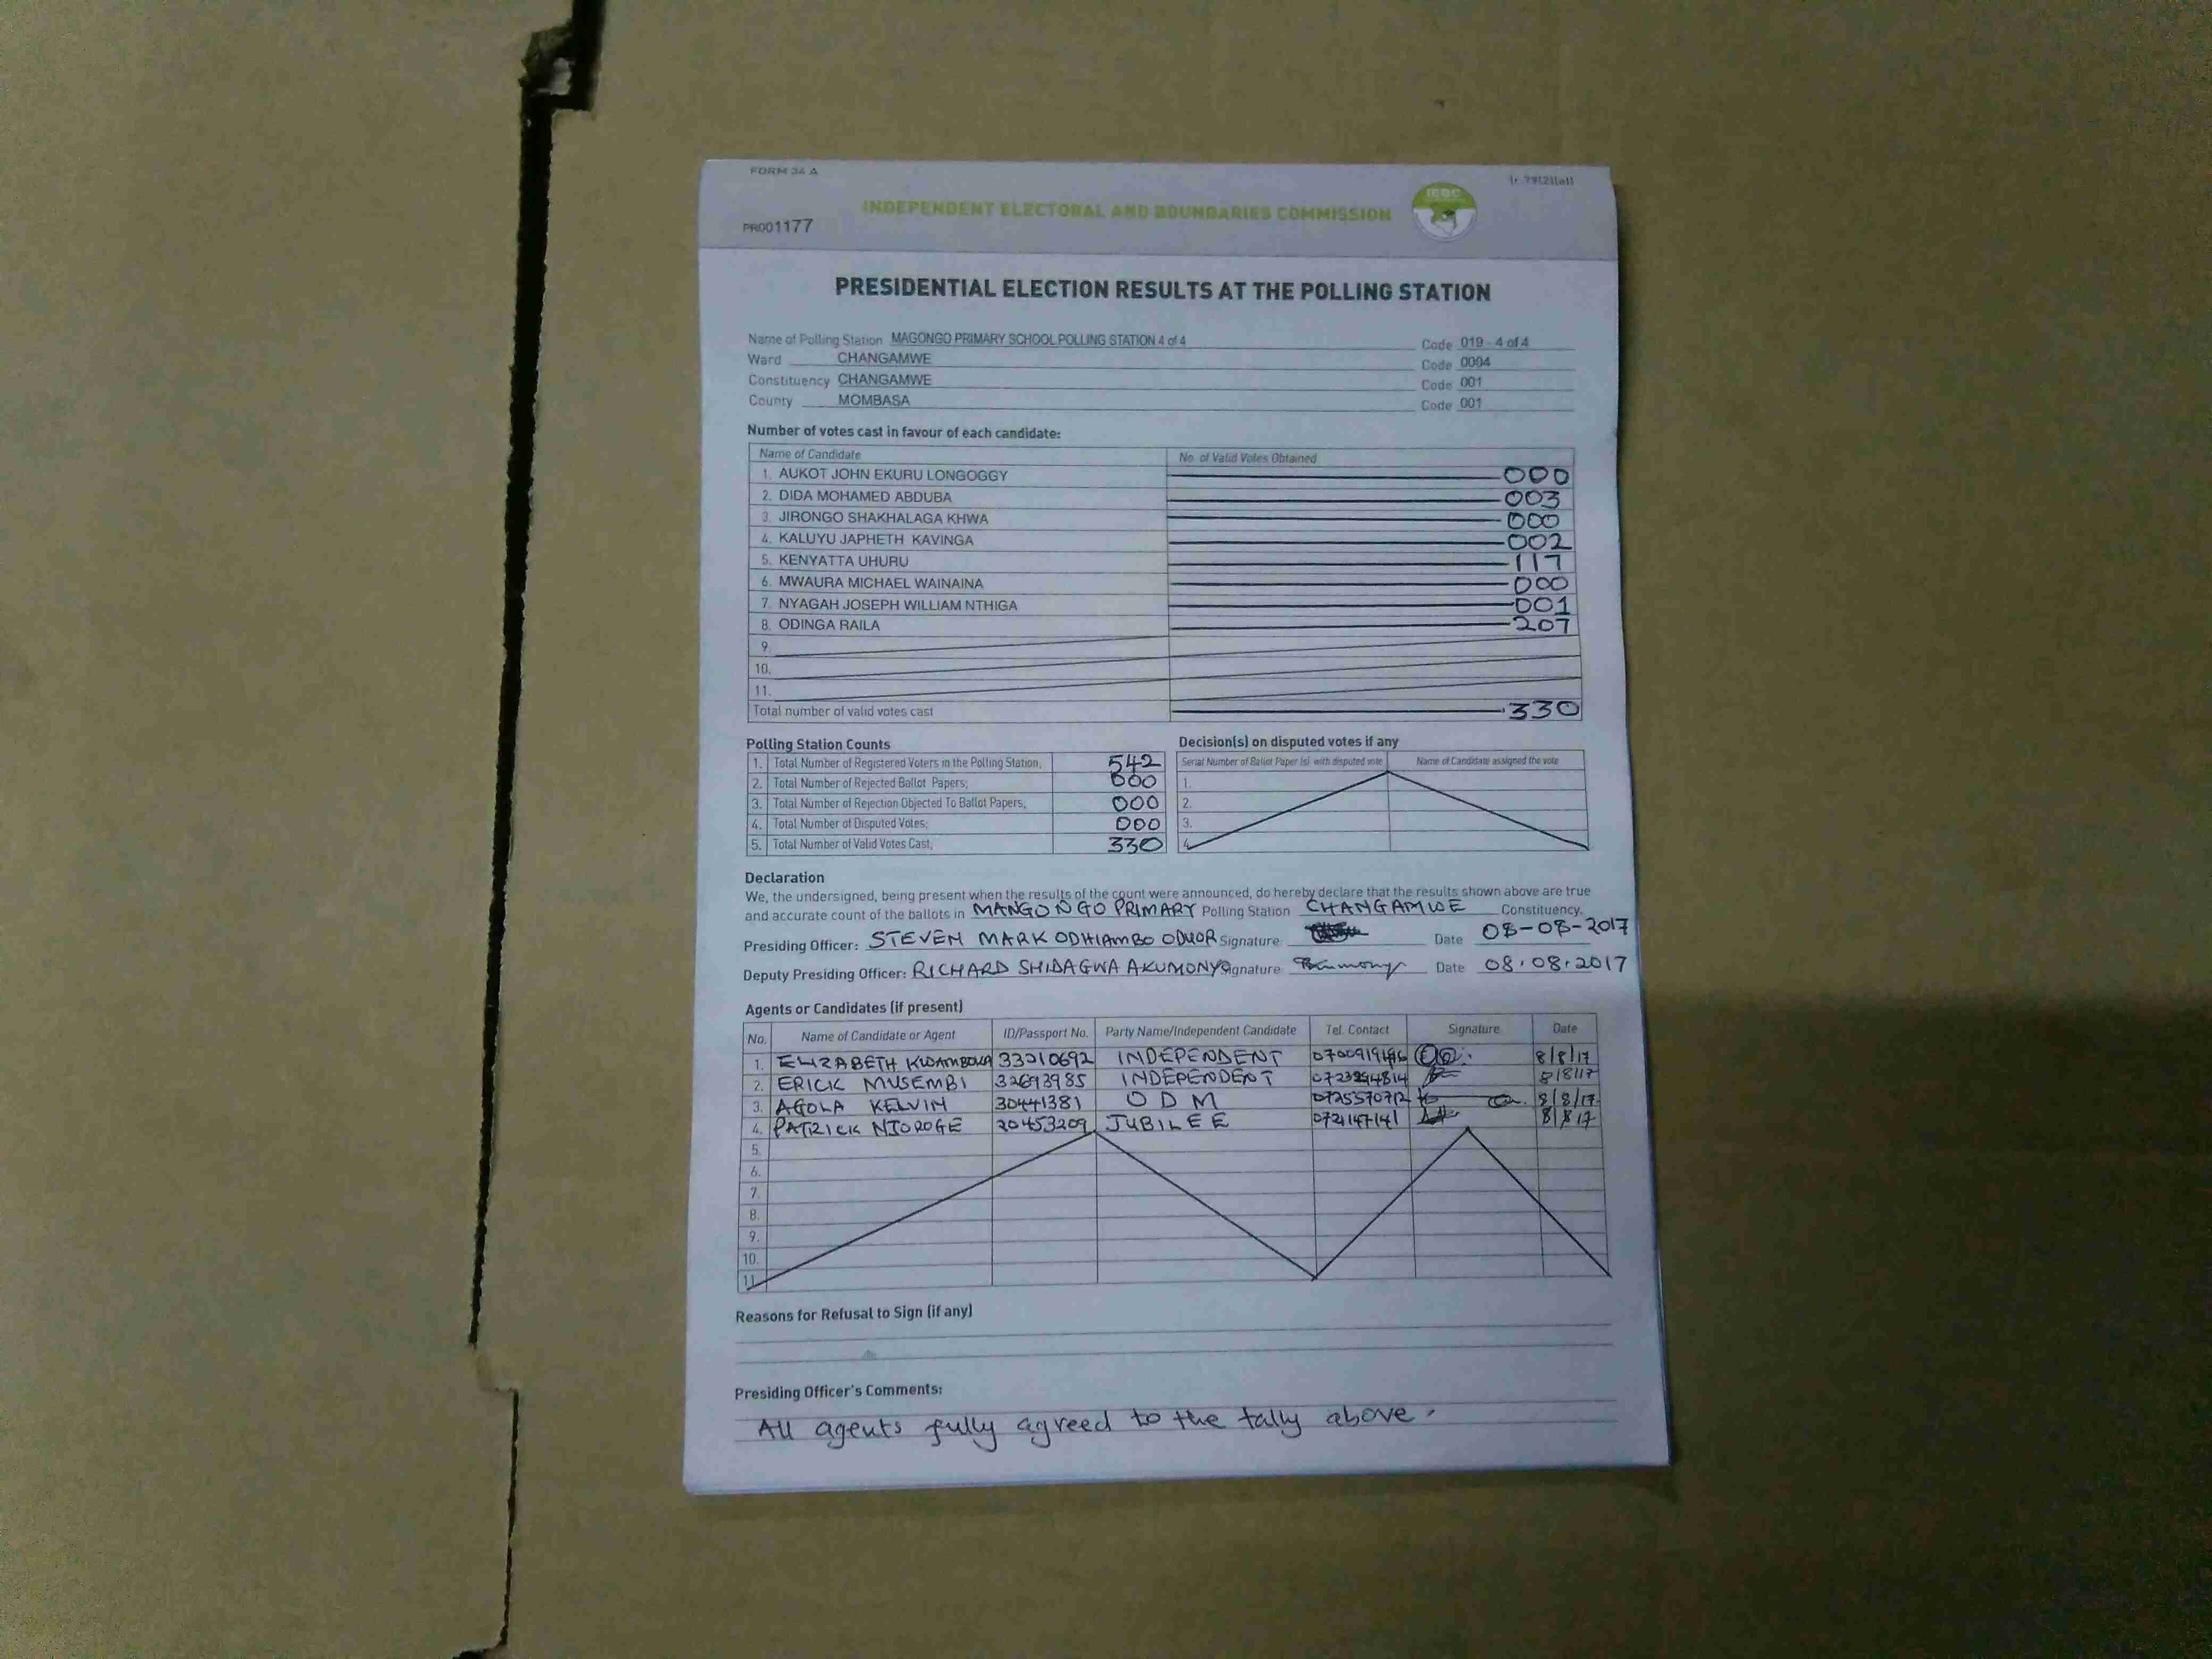 FORM 34 A
INDEPENDENT ELECTORAL AND BOUNDARIES COMMISSION
IEBC
PR001177
PRESIDENTIAL ELECTION RESULTS AT THE POLLING STATION
Name of Polling Station MAGONGO PRIMARY SCHOOL POLLING STATION 4 of 4 Code 019 - 4 of 4
Ward CHANGAMWE Code 0004
Constituency CHANGAMWE Code 001
County MOMBASA Code 001
Number of votes cast in favour of each candidate:
Name of Candidate No. of Valid Votes Obtained
1. AUKOT JOHN EKURU LONGOGGY 000
2. DIDA MOHAMED ABDUBA 003
3. JIRONGO SHAKHALAGA KHWA 000
4. KALUYU JAPHETH KAVINGA 002
5. KENYATTA UHURU 117
6. MWAURA MICHAEL WAINAINA 000
7. NYAGAH JOSEPH WILLIAM NTHIGA 001
8. ODINGA RAILA 207
9.
10.
11.
Total number of valid votes cast 330
Polling Station Counts
1. Total Number of Registered Voters in the Polling Station; 542
2. Total Number of Rejected Ballot Papers; 000
3. Total Number of Rejection Objected To Ballot Papers; 000
4. Total Number of Disputed Votes; 000
5. Total Number of Valid Votes Cast; 330
Decision(s) on disputed votes if any
Serial Number of Ballot Paper (s) with disputed vote Name of Candidate assigned the vote
1.
2.
3.
4.
Declaration
We, the undersigned, being present when the results of the count were announced, do hereby declare that the results shown above are true
and accurate count of the ballots in MANGONGO PRIMARY Polling Station CHANGAMWE Constituency.
Presiding Officer: STEVEN MARK ODHIAMBO ODUOR Signature: Date 08-08-2017
Deputy Presiding Officer: RICHARD SHIDAGWA AKUMONYO Signature Date 08.08.2017
Agents or Candidates (if present)
No. Name of Candidate or Agent ID/Passport No. Party Name/Independent Candidate Tel. Contact Signature Date
1. ELIZABETH 33010692 INDEPENDENT 8/8/17
2. ERICK MUSEMBI 32693985 INDEPENDENT 8/8/17
3. AGOLA KELVIN 30441381 ODM 0725570712 8/8/17
4. PATRICK NJOROGE 20453209 JUBILEE 072147141 8/8/17
5.
6.
7.
8.
9.
10.
11.
Reasons for Refusal to Sign (if any)
Presiding Officer's Comments:
All agents fully agreed to the tally above.